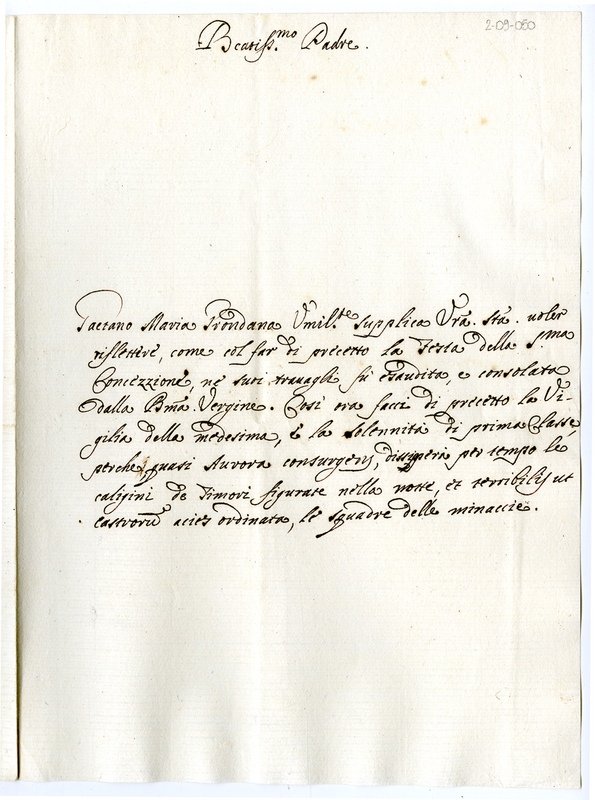 2-09-060
Beatiss.mo Padre.
Gaetano Maria Trondana Umil.te supplica Vra. Stà. voler
riflettere, come col far di precetto la Festa della S.ma
Concezzione, ne suoi travagli fù esaudita, e consolata
dalla Bma. Vergine. Così ora facci di precetto la Vi-
gilia della medesima, e la solennità di prima Classe,
perche quasi Aurora consurgens, dissiperà per tempo le
caligini de Timori figurate nella notte, et terribilis ut
castrorũ acies ordinata, le squadre delle minaccie.